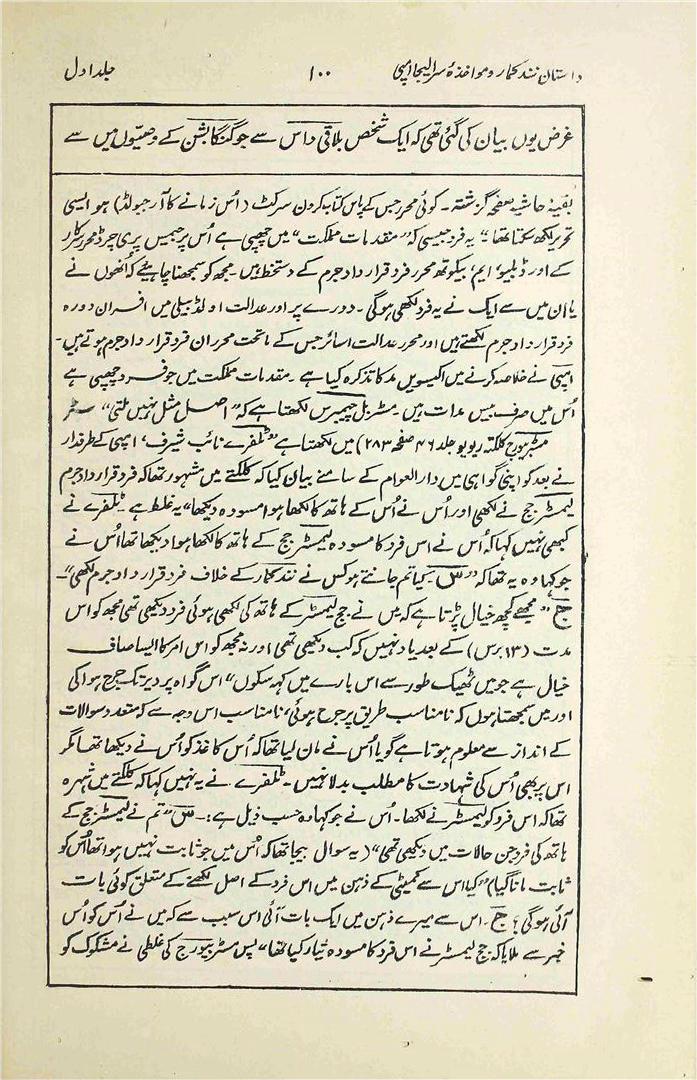 داستان نند کمار و مواخذہ سر الیجا امپی ۱۰۰ جلد اول
غرض یوں بیان کی گئی تھی کہ ایک شخص بلاقی داس سے جو گنگا بشن کے وصیّوں میں سے
بقیہ حاشیہ صفحہ گزشتہ ۔ کوئی محرر جس کے پاس کتاب کرون سرکٹ (اُس زمانے کا آرجبولڈ) ہو ایسی
تحریر لکھ سکتا تھا"۔ یہ فرد جیسی کہ "مقدمات مملکت" میں چھپی ہے اُس پر جیمس پری چرڈ محرر سرکار
کے اور ڈبلیو، ایم، بیکوتھ محرر فرد قرار داد جرم کے دستخط ہیں ۔ مجھ کو سمجھنا چاہیئے کہ اُنھوں نے
یا اُن میں سے ایک نے یہ فرد لکھی ہوگی ۔ دورے پر اور عدالت اولڈ بیلی میں افسران دورہ
فرد قرار داد جرم لکھتے ہیں اور محرر عدالت اسائز جس کے ماتحت محرران فرد قرار داد جرم ہوتے ہیں ۔
امپی نے خلاصہ کرنے میں اکیسویں مد کا تذکرہ کیا ہے ۔ مقدمات مملکت میں جو فرد چھپی ہے
اُس میں صرف بیس مدات ہیں ۔ مسٹر بل چیمبرس لکھتا ہے کہ "اصل مثل نہیں ملتی" مسٹر
بیورج کلکتہ ریویو جلد ۴۶ صفحہ ۲۸۳) میں لکھتا ہے "ٹلفرے نائب شیرف، امپی کے طرفدار
نے بعد کو اپنی گواہی میں دارالعوام کے سامنے بیان کیا کہ کلکتے میں مشہور تھا کہ فرد قرار داد جرم
لیمسٹر جج نے لکھی اور اُس نے اُس کے ہاتھ کا لکھا ہوا مسودہ دیکھا" یہ غلط ہے ۔ ٹلفرے نے
کبھی نہیں کہا کہ اُس نے اس فرد کا مسودہ لیمسٹر جج کے ہاتھ کا لکھا ہوا دیکھا تھا اُس نے
جو کہا وہ یہ تھا کہ "س ۔ کیا تم جانتے ہو کس نے نند کمار کے خلاف فرد قرار داد جرم لکھی"۔
ج "مجھے کچھ خیال پڑتا ہے کہ میں نے جج لیمسٹر کے ہاتھ کی لکھی ہوئی فرد دیکھی تھی مجھ کو اس
مدت (۱۳ برس) کے بعد یاد نہیں کہ کب دیکھی تھی اور نہ مجھ کو اس امر کا ایسا صاف
خیال ہے جو میں ٹھیک طور سے اس بارے میں کہہ سکوں" اس گواہ پر دیر تک جرح ہوا کی
اور میں سمجھتا ہوں کہ نامناسب طریق پر جرح ہوئی، نامناسب اس وجہ سے کہ متعدد سوالات
کے انداز سے معلوم ہوتا ہے گویا اُس نے مان لیا تھا کہ اُس کاغذ کو اُس نے دیکھا تھا مگر
اس پر بھی اُس کی شہادت کا مطلب بدلا نہیں ۔ ٹلفرے نے یہ نہیں کہا کہ کلکتے میں شہرہ
تھا کہ اس فرد کو لیمسٹر نے لکھا ۔ اُس نے جو کہا وہ حسب ذیل ہے :۔ س "تم نے لیمسٹر جج کے
ہاتھ کی فرد جن حالات میں دیکھی تھی" (یہ سوال بیجا تھا کہ اُس میں جو ثابت نہیں ہوا تھا اُس کو
ثابت مانا گیا) "کیا اس سے کمیٹی کے ذہن میں اس فرد کے اصل لکھنے کے متعلق کوئی بات
آئی ہوگی؟ ج ۔ اس سے میرے ذہن میں ایک بات آئی اس سبب سے کہ میں نے اُس کو اُس
خبر سے ملایا کہ جج لیمسٹر نے اس فرد کا مسودہ تیار کیا تھا" پس مسٹر بیورج کی غلطی نے مشکوک کو